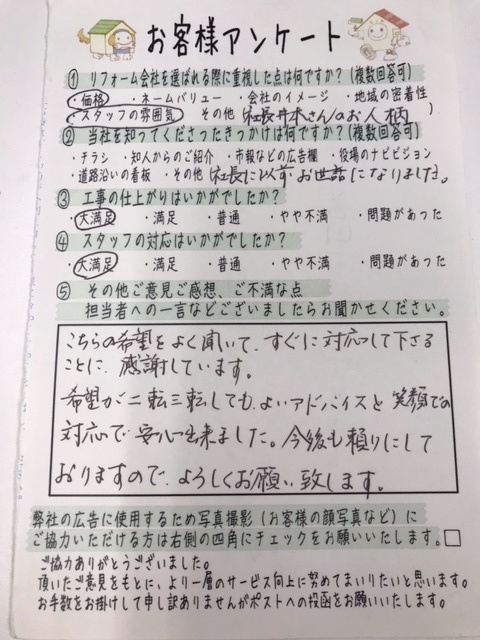 お客様アンケート
① リフォーム会社を選ばれる際に重視した点は何ですか？(複数回答可)
・価格 ・ネームバリュー ・会社のイメージ ・地域の密着性
・スタッフの雰囲気 その他(社長井本さんのお人柄)
② 当社を知ってくださったきっかけは何ですか？(複数回答可)
・チラシ ・知人からのご紹介 ・市報などの広告欄 ・役場のナビビジョン
・道路沿いの看板 ・その他(社長に以前お世話になりました)
③ 工事の仕上がりはいかがでしたか？
・大満足 ・満足 ・普通 ・やや不満 ・問題があった
④ スタッフの対応はいかがでしたか？
・大満足 ・満足 ・普通 ・やや不満 ・問題があった
⑤ その他ご意見ご感想、ご不満な点
担当者への一言などございましたらお聞かせください。
こちらの希望をよく聞いて、すぐに対応して下さる
ことに、感謝しています。
希望が二転三転しても、よいアドバイスと笑顔での
対応で安心出来ました。今後も頼りにして
おりますので、よろしくお願い致します。
弊社の広告に使用するため写真撮影(お客様の顔写真など)に
ご協力いただける方は右側の四角にチェックをお願いいたします。
ご協力ありがとうございました。
頂いたご意見をもとに、より一層のサービス向上に努めてまいりたいと思います。
お手数をお掛けして申し訳ありませんがポストへの投函をお願いいたします。